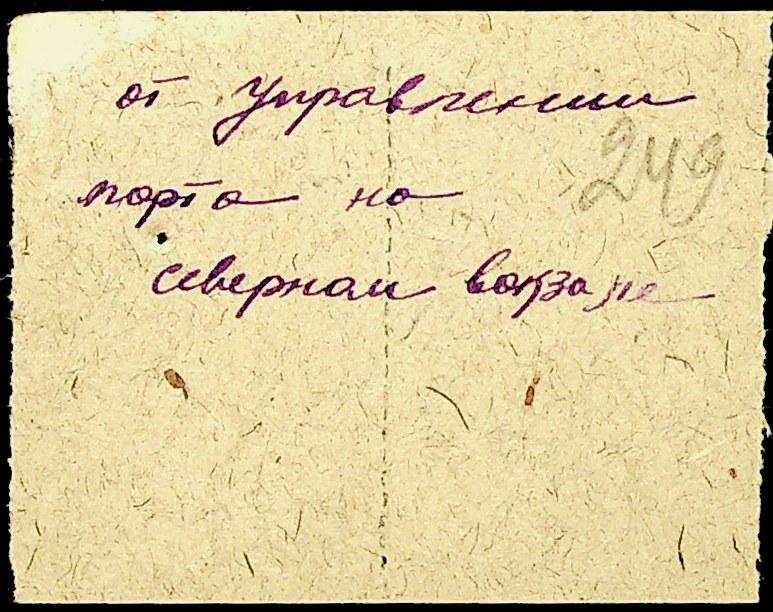 от Управлении
249
порта на
северном вокзале